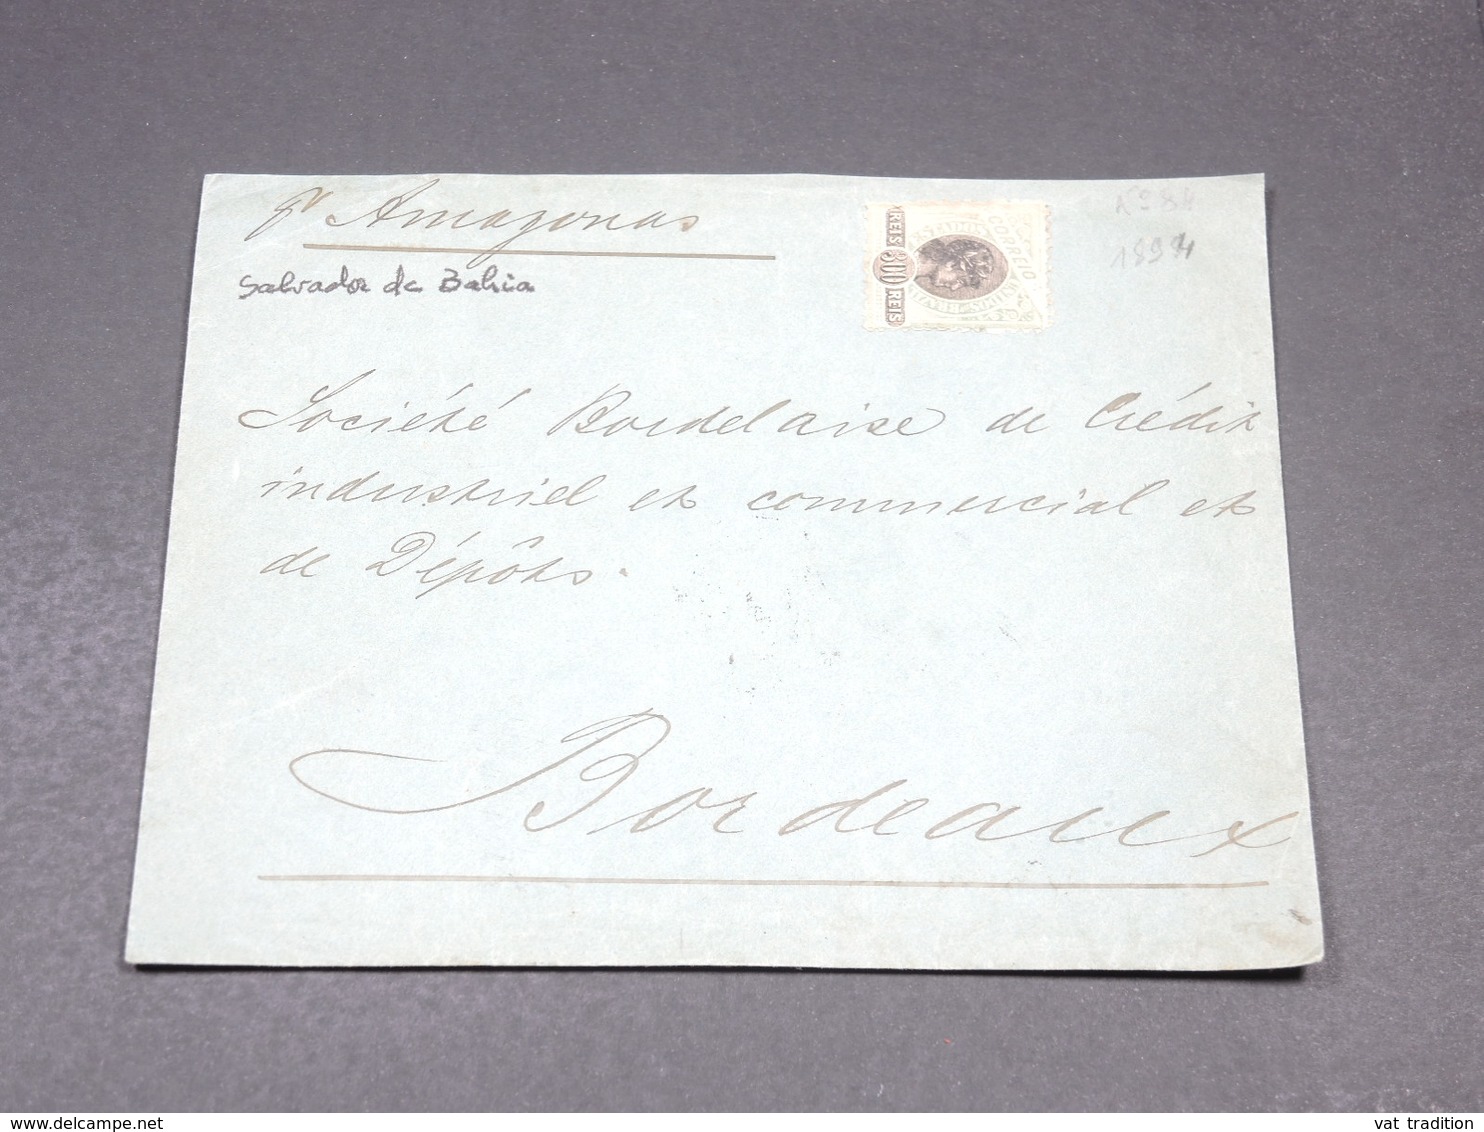 pr Amazonas
Salvador de Bahia
REIS 300 REIS
CORREIO
Nº 84
1894
Société Bordelaise de Crédit
industriel et commercial et
de Dépôts.
Bordeaux
www.delcampe.net
vat tradition